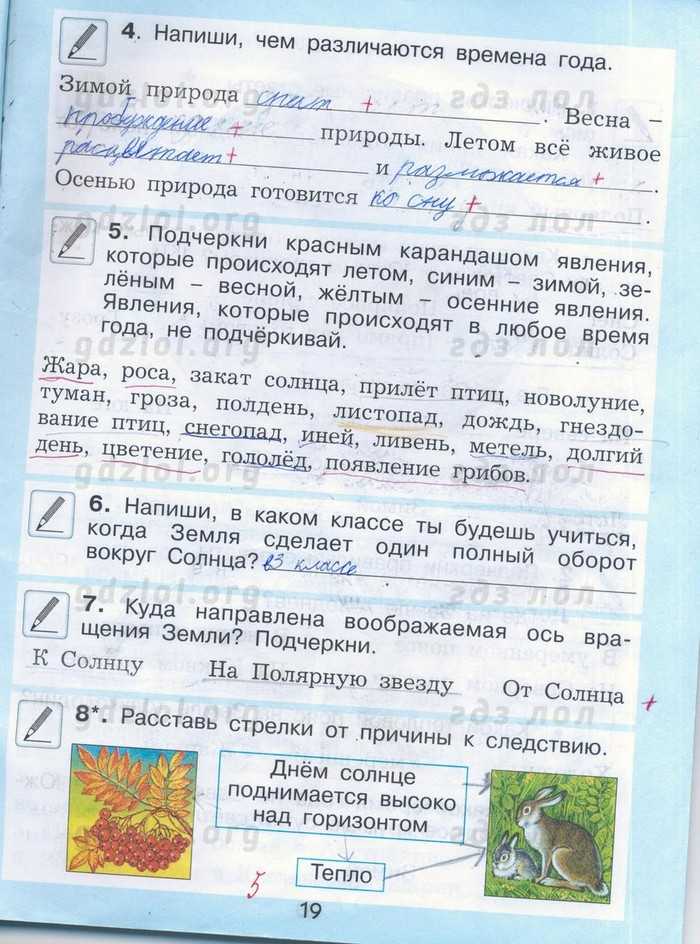 4. Напиши, чем различаются времена года.
gdzlol.org гдз лол
Зимой природа спит + . Весна –
пробуждение + природы. Летом всё живое
расцветает + и размножается + .
Осенью природа готовится ко сну + .
gdzlol.org гдз лол
5. Подчеркни красным карандашом явления,
которые происходят летом, синим – зимой, зе-
лёным – весной, жёлтым – осенние явления.
Явления, которые происходят в любое время
года, не подчёркивай.
gdzlol.org гдз лол
Жара, роса, закат солнца, прилёт птиц, новолуние,
туман, гроза, полдень, листопад, дождь, гнездо-
вание птиц, снегопад, иней, ливень, метель, долгий
день, цветение, гололёд, появление грибов.
gdzlol.org гдз лол
6. Напиши, в каком классе ты будешь учиться,
когда Земля сделает один полный оборот
вокруг Солнца? в 3 классе
gdzlol.org гдз лол
7. Куда направлена воображаемая ось вра-
щения Земли? Подчеркни.
К Солнцу На Полярную звезду От Солнца +
gdzlol.org гдз лол
8*. Расставь стрелки от причины к следствию.
Днём солнце
поднимается высоко
над горизонтом
gdzlol.org гдз лол
Тепло
5
19